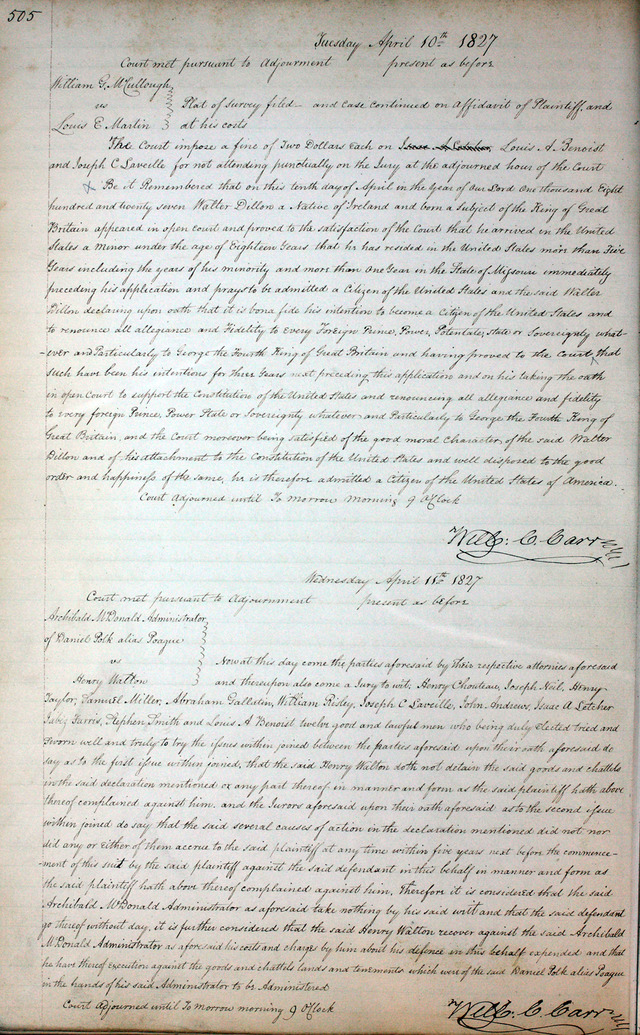 505
Tuesday April 10th 1827
Court met pursuant to Adjournment present as before
William G. McCullough
vs Plat of Survey filed and case continued on Affidavit of Plaintiff and
Louis E Martin at his costs
The Court impose a fine of Two Dollars Each on Louis A. Benoist
and Joseph C Laveille for not attending punctually on the Jury at the adjourned hour of the Court
Be it Remembered that on this tenth day of April in the Year of our Lord One thousand Eight
hundred and twenty seven Walter Dillon a Native of Ireland and born a Subject of the King of Great
Britain appeared in open court and proved to the satisfaction of the Court that he arrived in the United
States a Minor under the age of Eighteen Years that he has resided in the United States more than Five
Years including the years of his minority and more than one Year in the State of Missouri immediately
preceding his application and prays to be admitted a Citizen of the United States and the said Walter
Dillon declaring upon oath that it is bona fide his intention to become a Citizen of the United States and
to renounce all allegiance and Fidelity to Every Foreign Prince, Power, Potentate, State or Sovereignty what-
-ever and Particularly to George the Fourth King of Great Britain and having proved to the Court that
such have been his intentions for three Years next preceding this application and on his taking the oath
in open Court to support the Constitution of the United States and renouncing all allegiance and fidelity
to every foreign Prince, Power State or Sovereignty whatever and Particularly to George the Fourth King of
Great Britain, and the Court moreover being satisfied of the good moral character of the said Walter
Dillon and of his attachment to the Constitution of the United States and well disposed to the good
order and happiness of the same, he is therefore admitted a Citizen of the United States of America.
Court Adjourned until To Morrow Morning 9 O'Clock
Will: C. Carr
Wednesday April 11th 1827
Court met pursuant to Adjournment present as before
Archibald McDonald Administrator
of Daniel Polk alias Poague
vs Now at this day come the parties aforesaid by their respective attornies aforesaid
Henry Walton and thereupon also come a Jury to wit, Henry Chouteau, Joseph Neil, Henry
Taylor, Samuel Miller, Abraham Gallatin, William Risley, Joseph C Laveille, John Andrews, Isaac A Letcher
Farris, Stephen Smith and Louis A Benoist twelve good and lawful men who being duly Elected tried and
Sworn well and truly to try the issues within joined between the parties aforesaid upon their oath aforesaid do
say as to the first issue within joined, that the said Henry Walton doth not detain the said goods and chattels
in the said declaration mentioned or any part thereof in manner and form as the said plaintiff hath above
thereof complained against him, and the Jurors aforesaid upon their oath aforesaid as to the second issue
within joined do say that the said several causes of action in the declaration mentioned did not nor
did any or either of them accrue to the said plaintiff at any time within five years next before the commence-
-ment of this suit by the said plaintiff against the said defendant in this behalf in manner and form as
the said plaintiff hath above thereof complained against him, Therefore it is considered that the said
Archibald McDonald Administrator as aforesaid take nothing by his said writ and that the said defendant
go thereof without day, it is further considered that the said Henry Walton recover against the said Archibald
McDonald Administrator as aforesaid his costs and charges by him about his defence in this behalf expended and that
he have thereof execution against the goods and chattels lands and tenements which were of the said Daniel Polk alias Poague
in the hands of his said Administrator to be Administered
Court Adjourned until To Morrow morning 9 O'Clock
Will: C. Carr